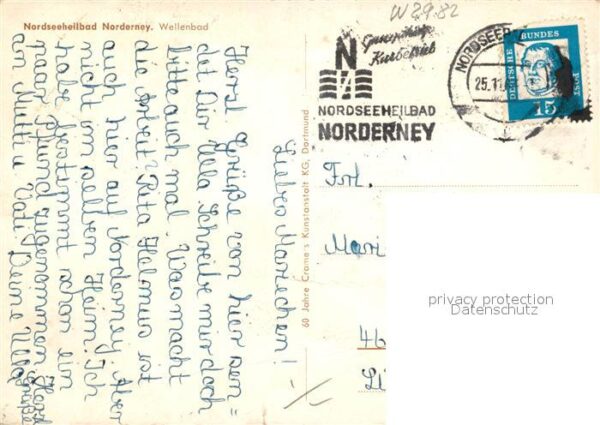 Nordseeheilbad Norderney. Wellenbad
W 29.82
Ganzjährig
Kurbetrieb
N
NORDSEEHEILBAD
NORDERNEY
NORDSEE
25.11
DEUTSCHE BUNDES POST
15
60 Jahre Cramers Kunstanstalt KG, Dortmund
Liebes Mariechen!
Herzl. Grüße von hier sen=
det Dir Ulla. Schreibe mir doch
bitte auch mal. Was macht
die Arbeit? Rita Helmus ist
auch hier auf Norderney. Aber
nicht im selben Heim. Ich
habe bestimmt schon ein
paar Pfund zugenommen. Herzl.
Grüße
an Mutti u. Vati. Deine Ulla
Frl.
Mari
46
privacy protection
Datenschutz